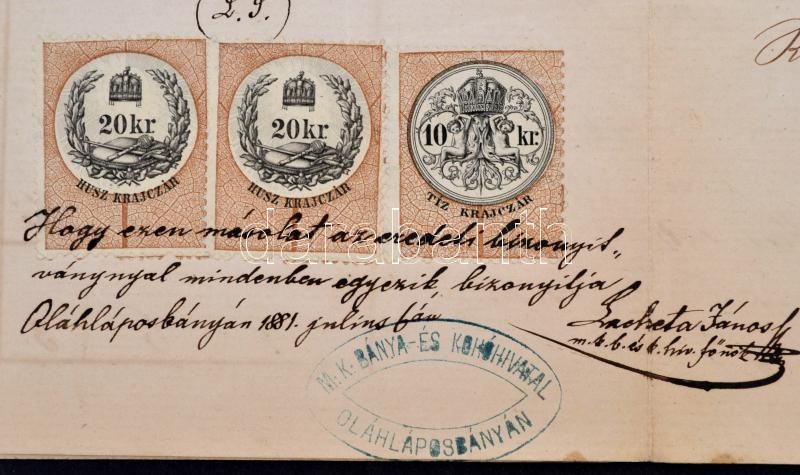 L. S.
20 kr.
HUSZ KRAJCZÁR
20 kr.
HUSZ KRAJCZÁR
10 kr.
TIZ KRAJCZÁR
Hogy ezen másolat az eredeti bizonyit„
ványnyal mindenben egyezik, bizonyitja
Oláhláposbányán 1881. julius 6án
Lacheta János
m. k. b. és k. hiv. főnök
M. K. BÁNYA- ÉS KOHÓHIVATAL
OLÁHLÁPOSBÁNYÁN
darabanth